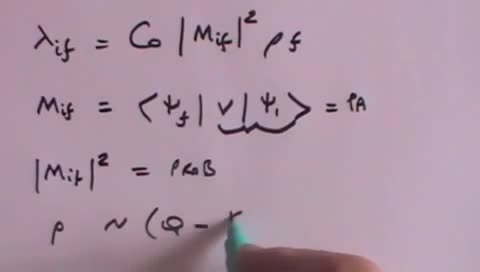 λif = C₀ |Mif|² ρf
Mif = ⟨Ψf | V | Ψi⟩ = PA
|Mif|² = PROB
ρ ~ (Q -